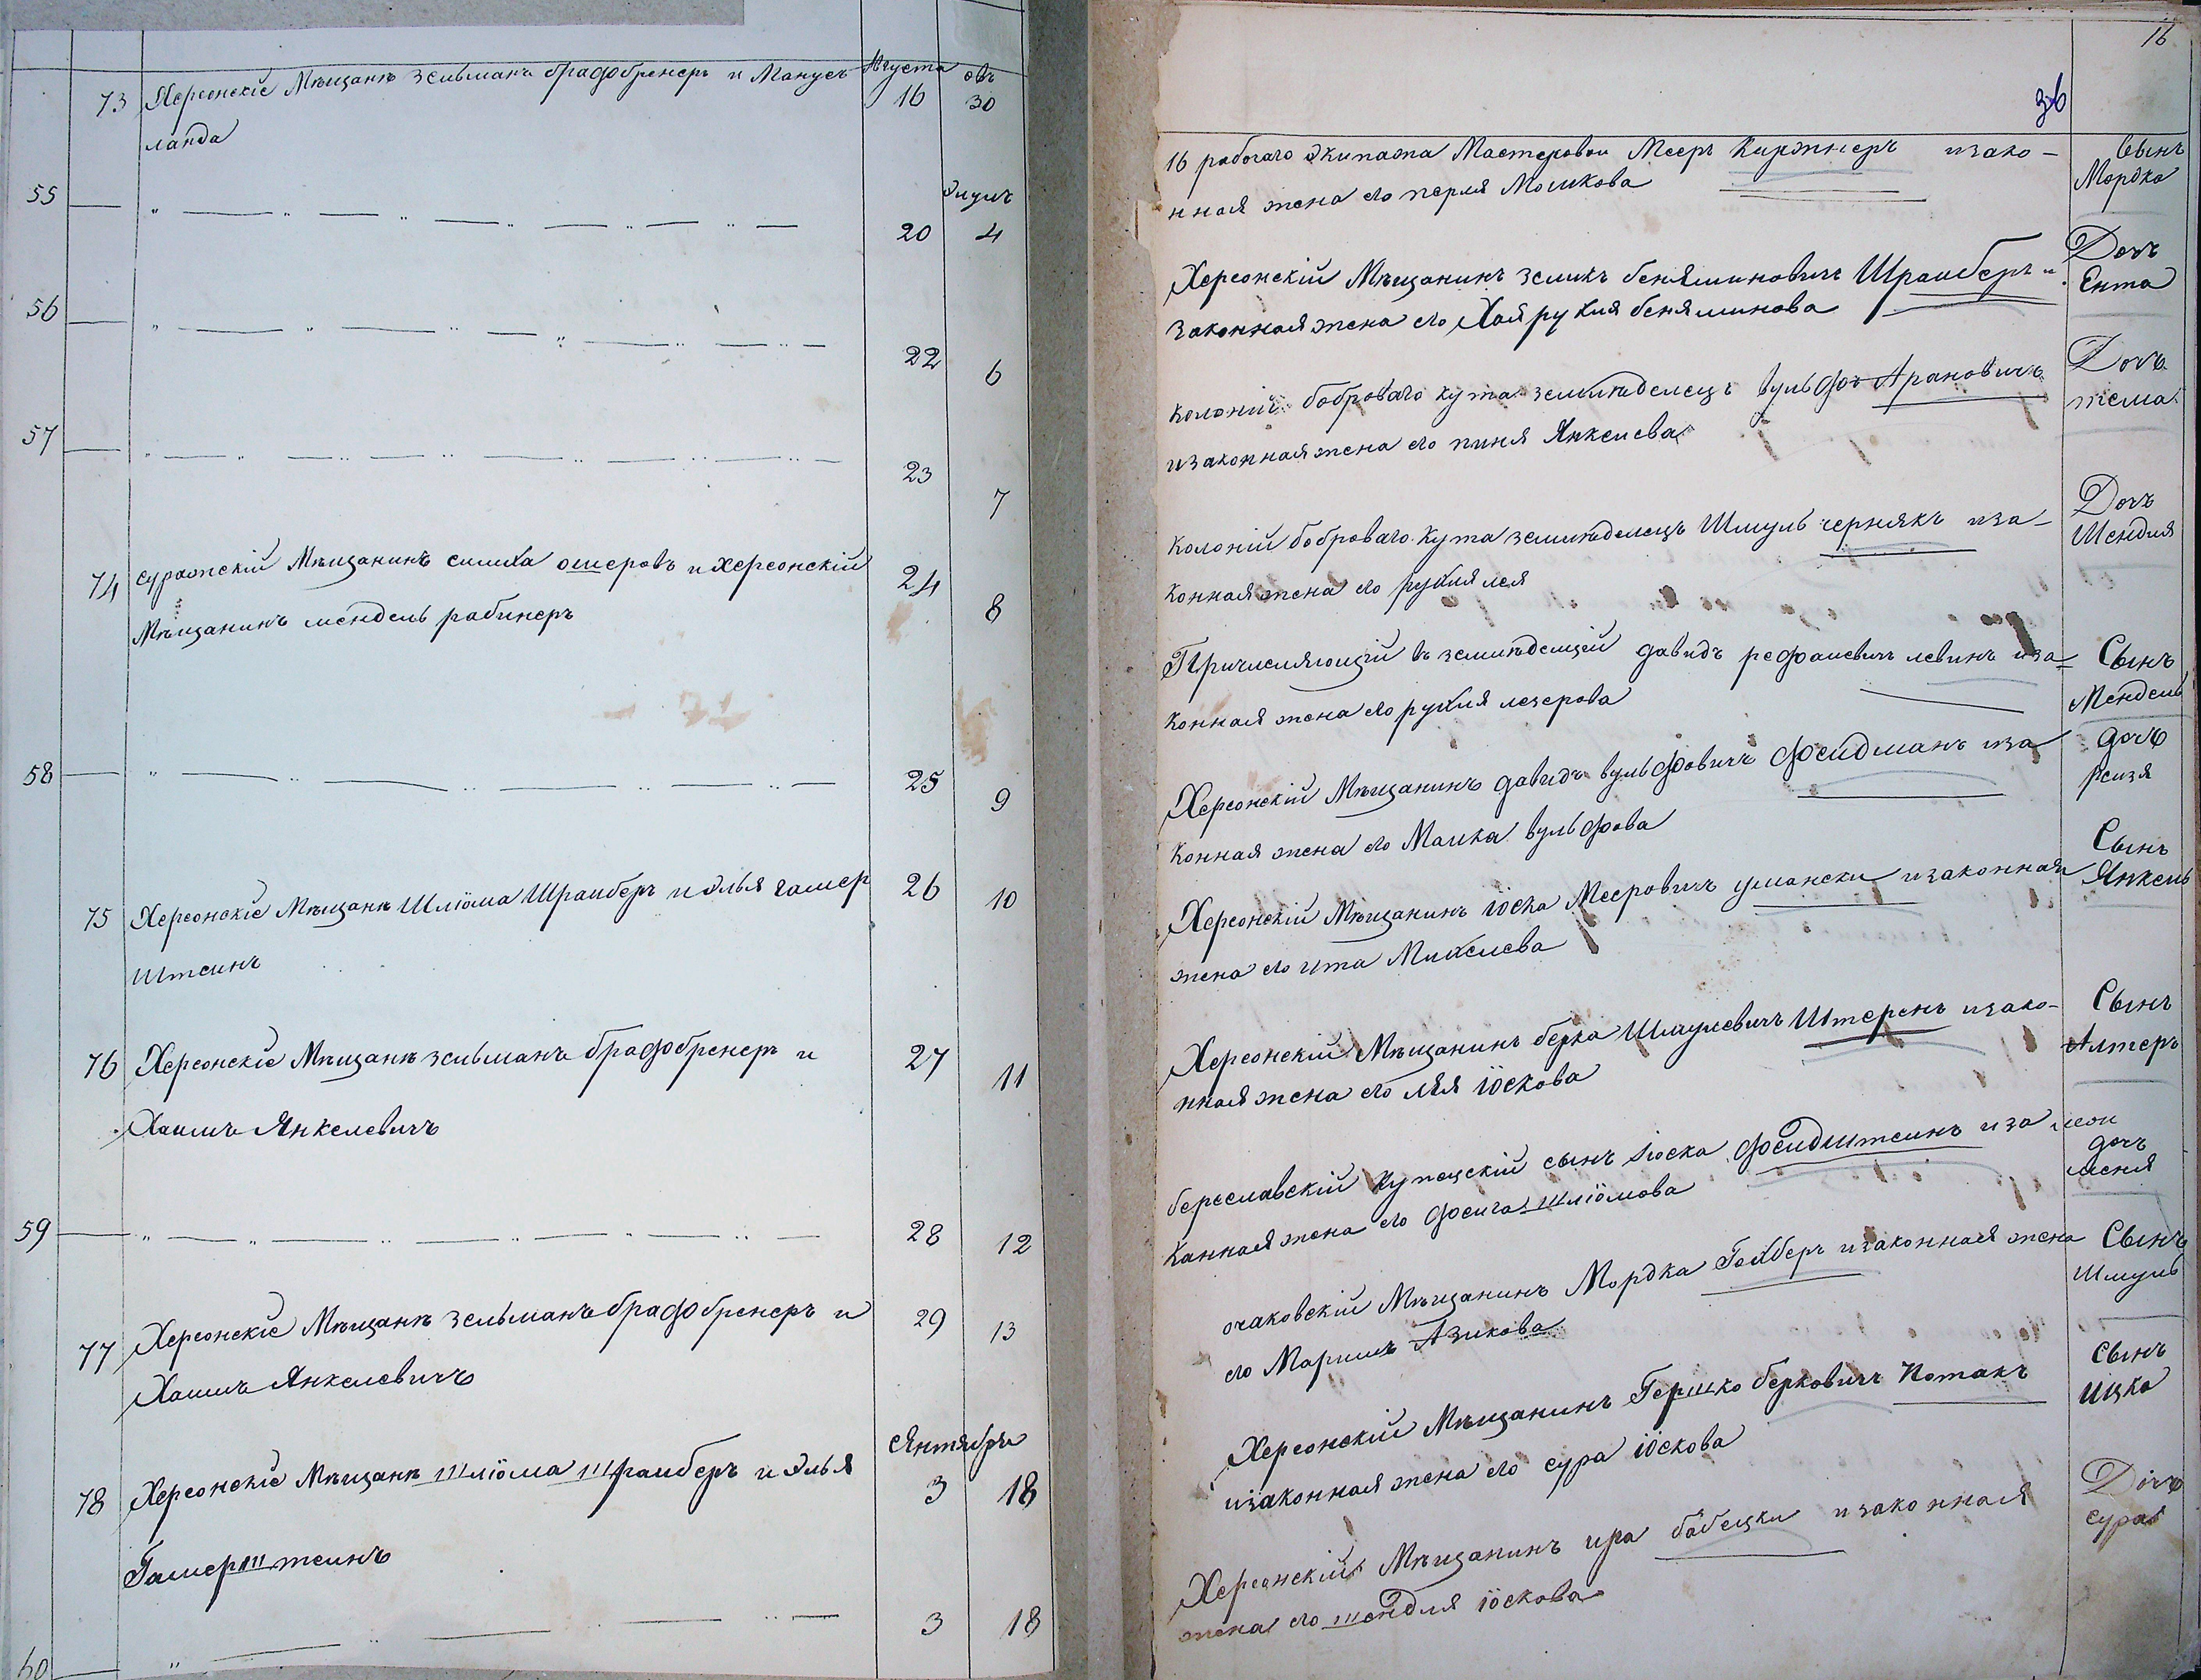 Августа овъ
73 Херсонскіе Мѣщанѣ зельманъ брафобренеръ и Манусъ 16 30
ланда
Элулъ
55 20 4
56 22 6
57 23 7
74 суражскій Мѣщанинъ симха ошеровъ и херсонскій 24 8
Мѣщанинъ мендель рабинеръ
58 25 9
75 Херсонскіе Мѣщанѣ Шліома Шраиберъ и элья гамер 26 10
штеинъ
76 Херсонскіе Мѣщанѣ зельманъ брафобренеръ и 27 11
Хаимъ Янкелевичъ
59 28 12
77 Херсонскіе Мѣщанѣ зельманъ брафобренеръ и 29 13
Хаимъ Янкелевичъ
сентября
78 Херсонскіе Мѣщанѣ шліома шраиберъ и элья 3 18
Гамерштеинъ
60 3 18
16
36
16 рабочаго экипажа Мастеровои Мееръ Киржнеръ изако-
нная жена его перля Мошкова
Сынъ
Мордко
Херсонскій Мѣщанинъ зеликъ беняминовичъ Шраиберъ и
законная жена его Хая рухля беняминова
Дочъ
Ента
Колоніи боброваго кута земледелецъ вульфъ Арановичъ
изаконная жена его пиня Янкелева
Дочъ
тема
Колоніи боброваго кута земледелецъ Шмуль чернякъ иза-
конная жена его рухля лея
Дочъ
Шендля
Причисляющій въ земледелцей давидъ рефаилевичъ левинъ иза-
конная жена его рухля лезерова
Сынъ
Мендель
Херсонскій Мѣщанинъ давидъ вульфовичъ фельдманъ иза
конная жена его Малка вульфова
дочъ
реизя
Херсонскій Мѣщанинъ іоска Мееровичъ умански изаконная
жена его ита Михелева
Сынъ
Янкель
Херсонскій Мѣщанинъ берка Шмулевичъ Штеренъ изако-
нная жена его лея іоскова
Сынъ
Алтеръ
бериславскій купецскій сынъ іоска фельдштеинъ иза
канная жена его феига шліомова
дочъ
меня
очаковскій Мѣщанинъ Мордка Гехберъ изаконная жена
его Маримъ Азикова
Сынъ
Шмуль
Херсонскій Мѣщанинъ Гершко берковичъ Потакъ
изаконная жена его сура іоскова
Сынъ
Ицко
Херсонскій Мѣщанинъ ира бабецки изаконная
жена его шендля іоскова
Дочъ
сура